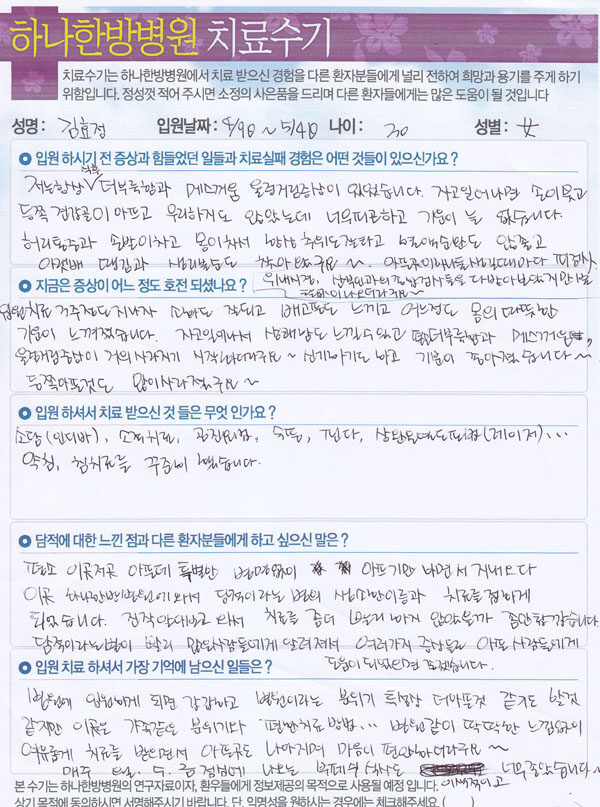 하나한방병원 치료수기
치료수기는 하나한방병원에서 치료 받으신 경험을 다른 환자분들에게 널리 전하여 희망과 용기를 주게 하기
위함입니다. 정성껏 적어 주시면 소정의 사은품을 드리며 다른 환자들에게는 많은 도움이 될 것입니다
성명 : 김효정 입원날짜 : 4/9일 ~ 5/4일 나이 : 30 성별 : 女
입원 하시기 전 증상과 힘들었던 일들과 치료실패 경험은 어떤 것들이 있으신가요 ?
더부룩함과 메스꺼움 울렁거림증상이 있었습니다. 자고일어나면 손이붓고
등쪽 날갯죽지 아프고 무리하지도 않았는데 너무피곤하고 기운이 늘 없습니다.
허리통증과 손발이차고 몸이차서 추위도잘타고 않좋고
지금은 증상이 어느 정도 호전 되셨나요 ?
위내시경, 검사등을 다 받아보았지만
입원치료 지나자 소화도 잘되고 배고픔도 느끼고 어느정도 몸의 따뜻함
기운이 느껴졌습니다. 자고일어나서 상쾌함도 느낄수있고 더부룩함과 메스꺼움,
울렁거림증상이 거의 사라지기 시작하더라구요~ 신기하기도 하고 기분이 좋아졌습니다~
등쪽아픈것도 많이사라졌구요~
입원 하셔서 치료 받으신 것 들은 무엇 인가요 ?
소담(인디바), 약침, 침치료를 꾸준히 했습니다.
담적에 대한 느낀 점과 다른 환자분들에게 하고 싶으신 말은 ?
평소 이곳저곳 아픈데 특별한 병명없이 아프기만 하면서 지내오다
이곳 하나한방병원에와서 담적이라는 병의 생소한이름과 치료를 접하게
되었습니다. 진작 알아보고 와서 치료를 좀더 빨리 하지 않았을까 합니다.
담적이라는병이 빨리 많은사람들에게 알려져서 여러가지 증상들로 아픈 사람들에게
도움이 되었으면 좋겠습니다.
입원 치료 하셔서 가장 기억에 남으신 일들은 ?
병원에 입원하게 되면 갑갑하고 병원이라는 분위기 특성상 더아픈것 같기도 할것
같지만 이곳은 가족같은 분위기와 편안치료방법... 병원같이 딱딱한 느낌없이
여유롭게 치료를 받으면서 아픈곳도 나아지며 마음이 편안하더라구요~
매주 월, 수, 금 점심에 나오는 부페식 식사도 너무좋았습니다
본 수기는 하나한방병원의 연구자료이자, 환우들에게 정보제공의 목적으로 사용될 예정 입니다.
상기 목적에 동의하시면 서명해주시기 바랍니다. 단, 익명성을 원하시는 경우에는 체크해주세요. ( )